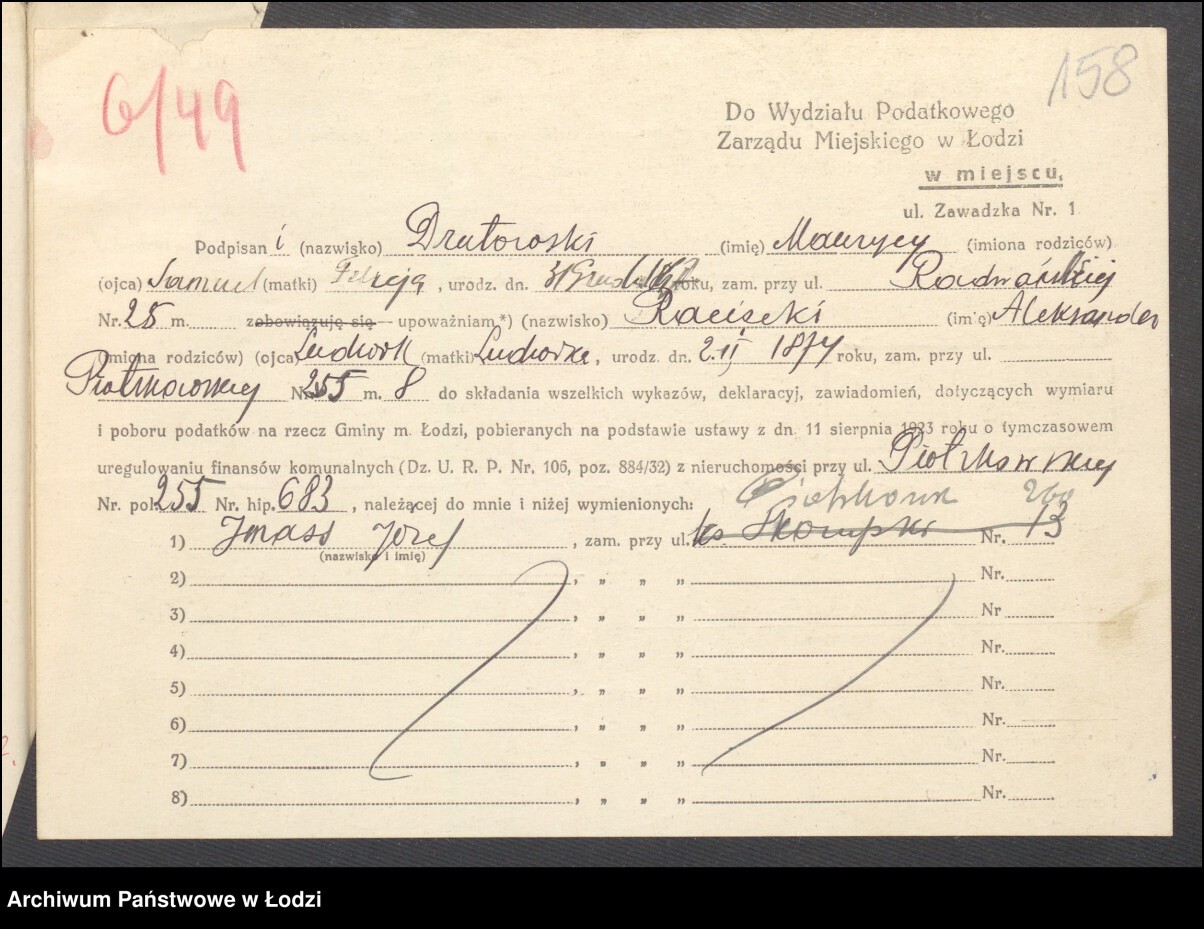 6/49
158
Do Wydziału Podatkowego
Zarządu Miejskiego w Łodzi
w miejscu,
ul. Zawadzka Nr. 1
Podpisan i (nazwisko) Drutowski (imię) Maurycy (imiona rodziców)
(ojca) Samuel (matki) , urodz. dn. 31 roku, zam. przy ul. Radwańskiej
Nr. 25 m. zobowiązuję się upoważniam*) (nazwisko) Raciecki (imię) Aleksander
(imiona rodziców) (ojca Ludwik (matki) Ludwika, urodz. dn. 2.II 1874 roku, zam. przy ul.
Piotrkowskiej Nr. 255 m. 8 do składania wszelkich wykazów, deklaracyj, zawiadomień, dotyczących wymiaru
i poboru podatków na rzecz Gminy m. Łodzi, pobieranych na podstawie ustawy z dn. 11 sierpnia 1923 roku o tymczasowem
uregulowaniu finansów komunalnych (Dz. U. R. P. Nr. 106, poz. 884/32) z nieruchomości przy ul. Piotrkowskiej
Nr. pol. 255 Nr. hip. 683, należącej do mnie i niżej wymienionych: Piotrkowsk 260
1) Józef , zam. przy ul. ks Skorupki Nr. 13
(nazwisko i imię)
2) , „ „ „ Nr.
3) , „ „ „ Nr
4) , „ „ „ Nr.
5) , „ „ „ Nr.
6) , „ „ „ Nr.
7) , „ „ „ Nr.
8) , „ „ „ Nr.
Archiwum Państwowe w Łodzi